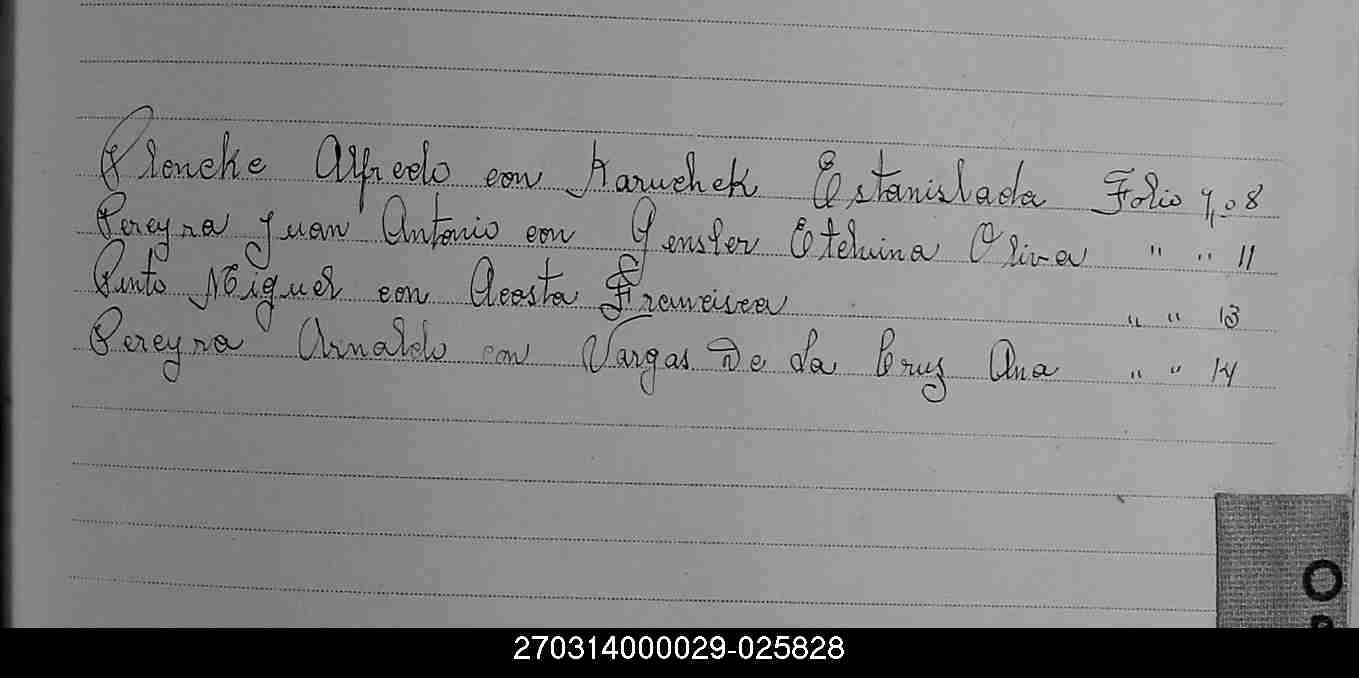 Ploncke Alfredo con Karuchek Estanislada Folio nº 8
Pereyra Juan Antonio con Gensler Etelvina Oliva " " 11
Pinto Miguel con Acosta Francisca " " 13
Pereyra Arnaldo con Vargas De La Cruz Ana " " 14
O
270314000029-025828